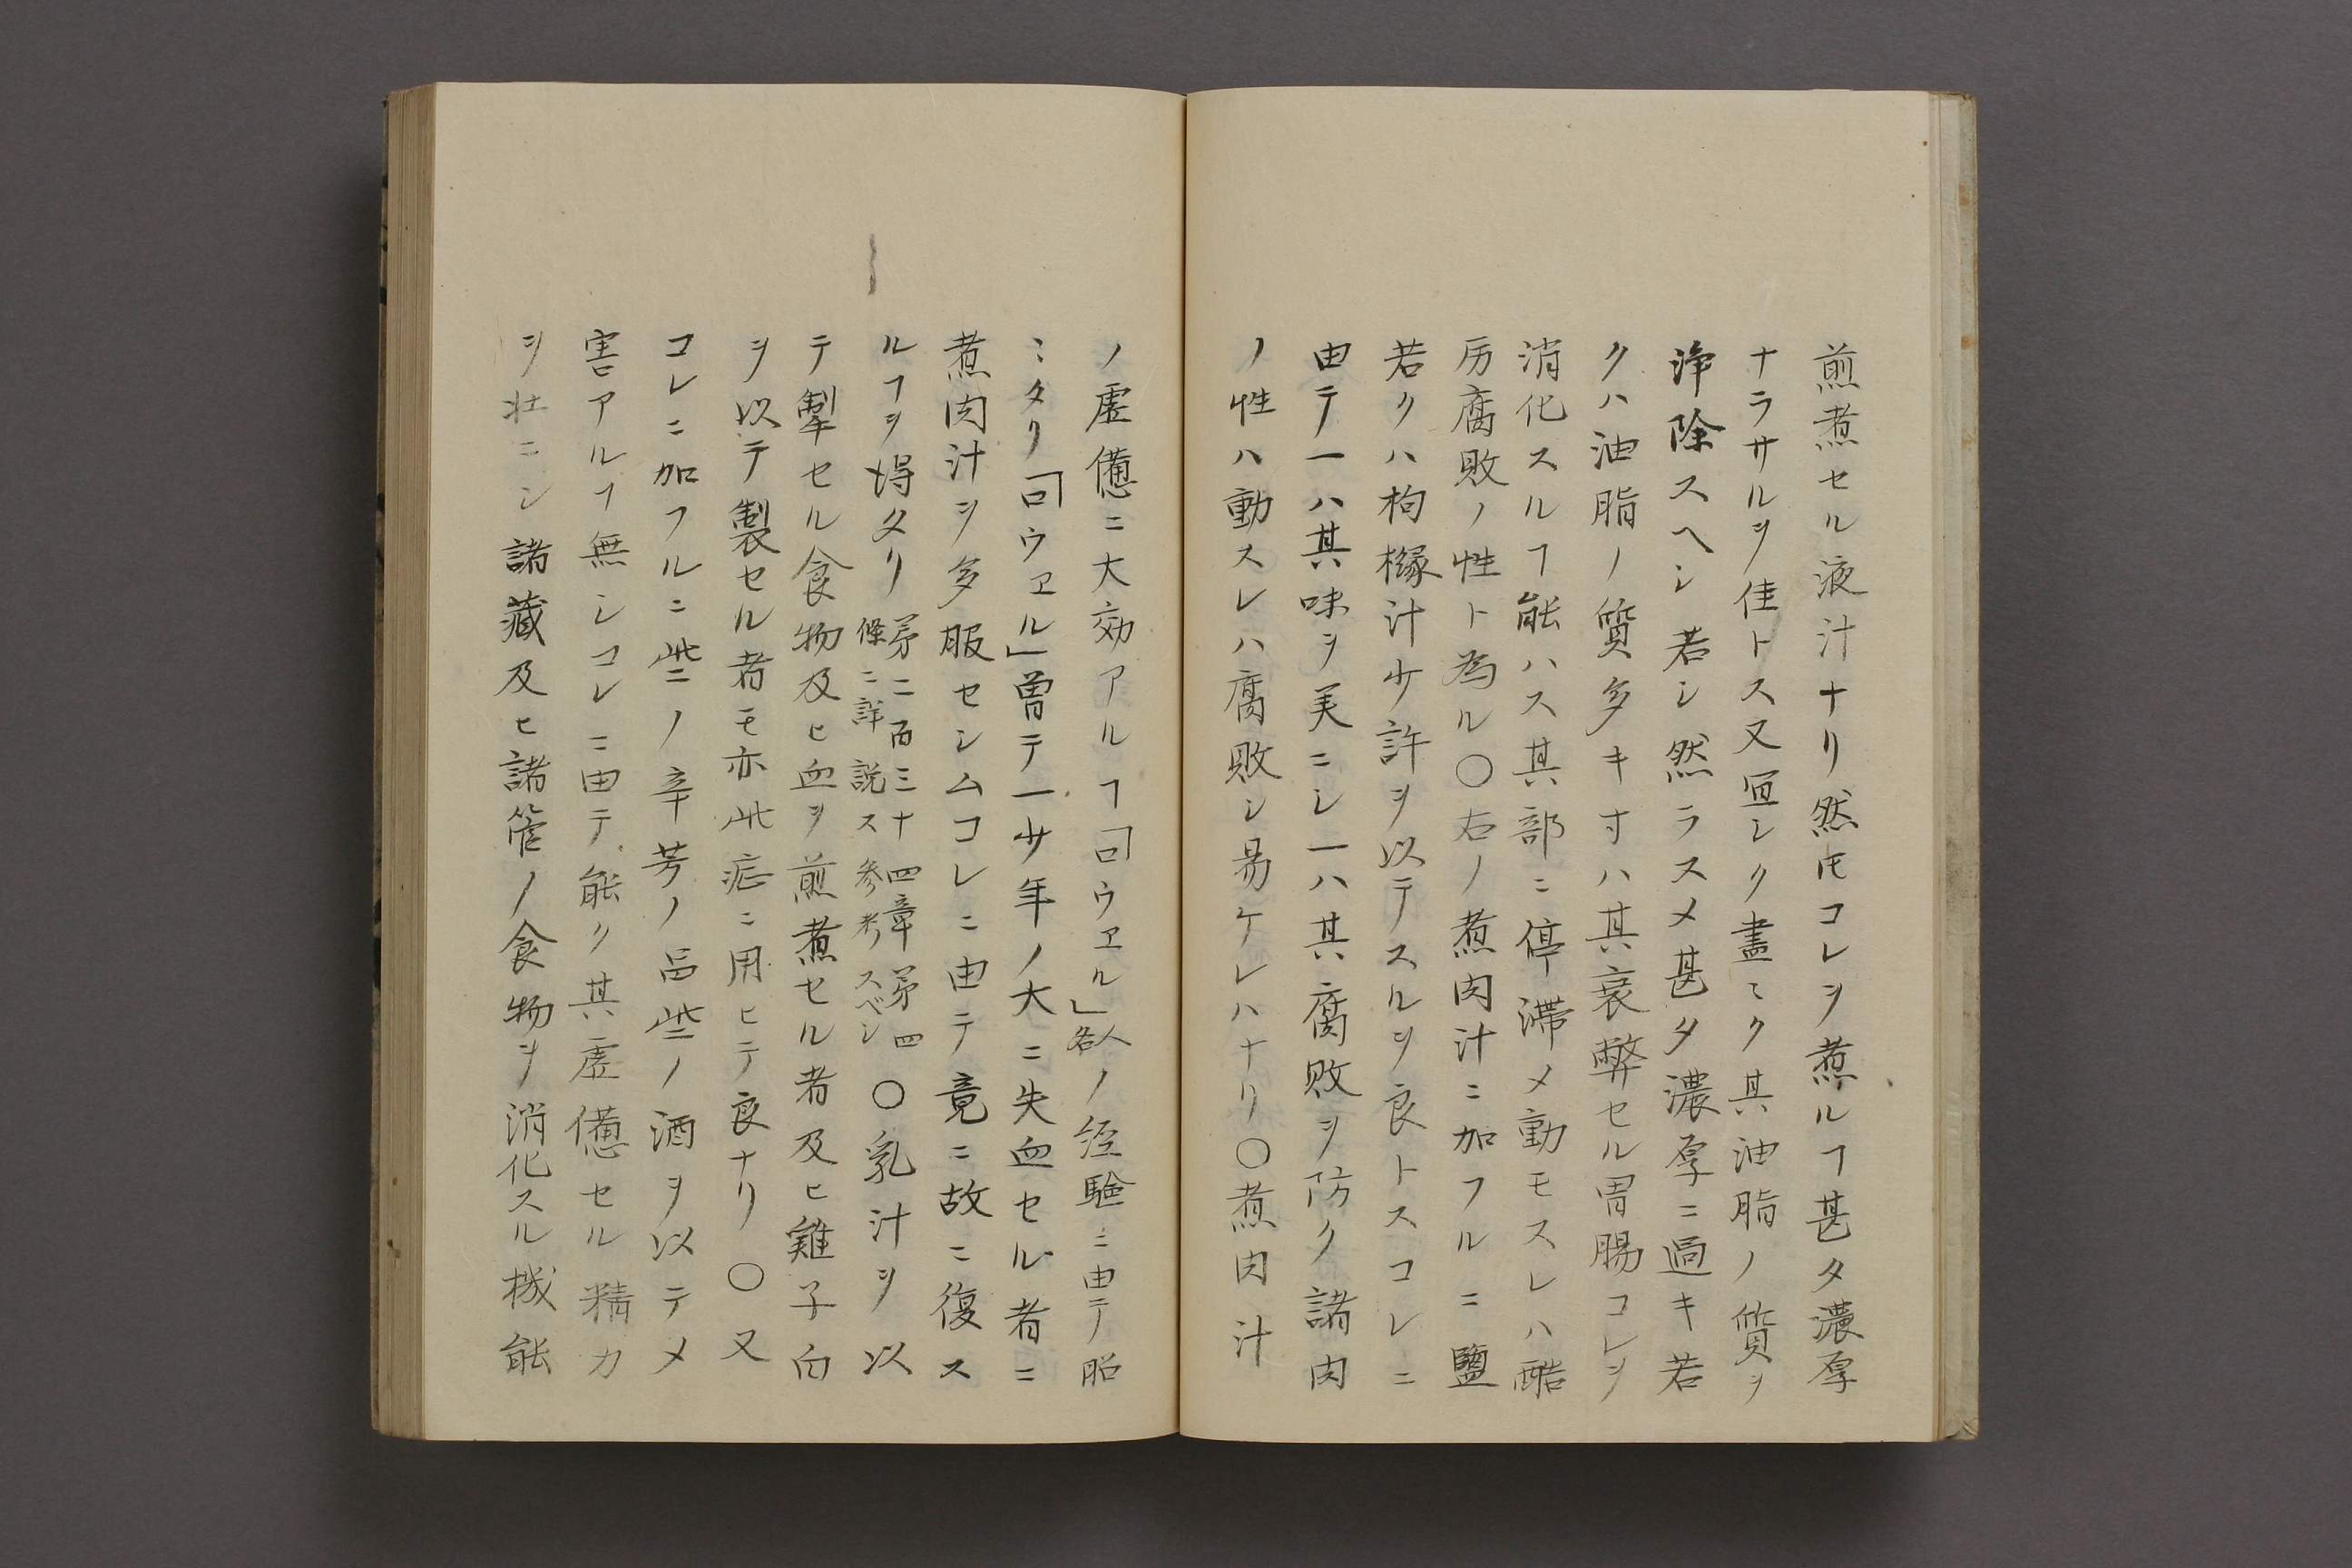 煎煮セル液汁ナリ然𪜈コレヲ煮ルヿ甚タ濃厚
ナラサルヲ佳トス又宜シク盡ミク其油脂ノ質ヲ
浄除スヘシ若シ然ラスメ甚タ濃厚ニ過キ若
クハ油脂ノ質多キ寸ハ其衰弊セル胃腸コレヲ
消化スルヿ能ハス其部ニ停滯メ動モスレハ酷
厉腐敗ノ性ト為ル〇右ノ煮肉汁ニ加フルニ鹽
若クハ枸櫞汁少許ヲ以テスルヲ良トスコレニ
由テ一ハ其味ヲ美ニシ一ハ其腐敗ヲ防ク諸肉
ノ性ハ動スレハ腐敗シ易ケレハナリ〇煮肉汁
ノ虚憊ニ大効アルヿ「ロウヱル」人名ノ経驗ニ由テ昭
ミタリ「ロウヱル」曽テ一少年ノ大ニ失血セル者ニ
煮肉汁ヲ多服セシムコレニ由テ竟ニ故ニ復ス
ルヿヲ得タリ第二百三十四章第四
條ニ詳説ス参考スベシ〇乳汁ヲ以
テ製セル食物及ヒ血ヲ煎煮セル者及ヒ雞子白
ヲ以テ製セル者モ亦此症ニ用ヒテ良ナリ〇又
コレニ加フルニ些ノ辛芳ノ品些ノ酒ヲ以テメ
害アルヿ無シコレニ由テ能ク其虚憊セル精力
ヲ壮ニシ諸藏及ヒ諸管ノ食物ヲ消化スル機能